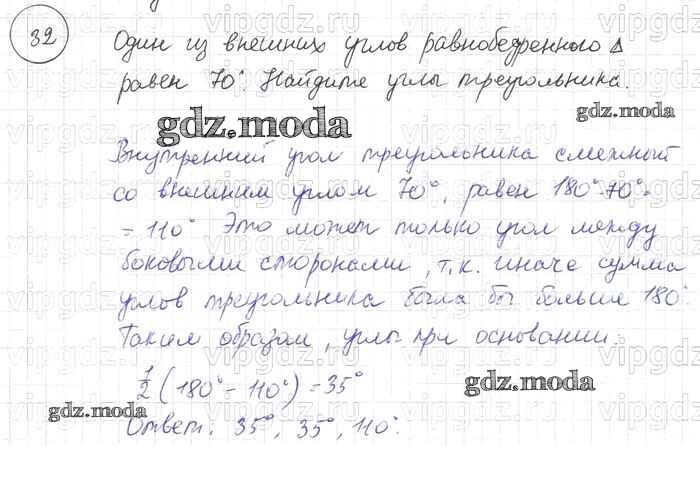 32
Один из внешних углов равнобедренного Δ
равен 70°. Найдите углы треугольника.
gdz.moda
gdz.moda
Внутренний угол треугольника смежный
со внешним углом 70°, равен 180°-70°=
= 110° Это может только угол между
боковыми сторонами, т.к. иначе сумма
углов треугольника была бы больше 180°
Таким образом, углы при основании:
1/2 (180° - 110°) = 35°
gdz.moda
gdz.moda
Ответ: 35°, 35°, 110°.